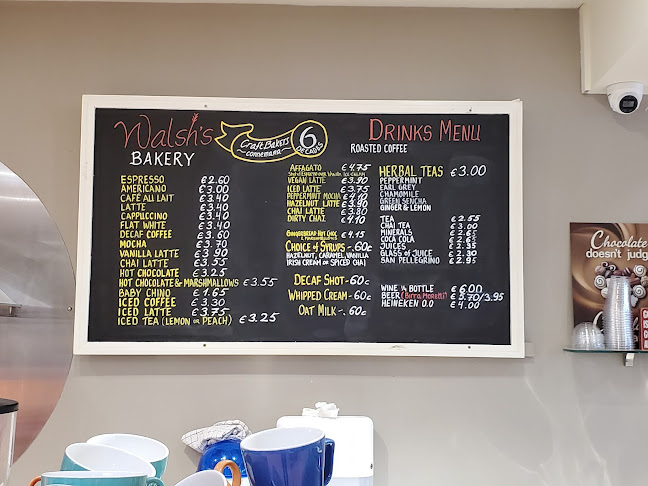 Walsh's
BAKERY
Craft Bakers
~connemara~
6
DECADES
DRINKS MENU
ROASTED COFFEE
ESPRESSO €2.60
AMERICANO €3.00
CAFÉ AU LAIT €3.40
LATTE €3.40
CAPPUCCINO €3.40
FLAT WHITE €3.40
DECAF COFFEE €3.60
MOCHA €3.70
VANILLA LATTE €3.90
CHAI LATTE €3.55
HOT CHOCOLATE €3.25
HOT CHOCOLATE & MARSHMALLOWS €3.55
BABY CHINO €1.65
ICED COFFEE €3.30
ICED LATTE €3.75
ICED TEA (LEMON OR PEACH) €3.25
AFFAGATO €4.75
VEGAN LATTE €3.90
ICED LATTE €3.75
PEPPERMINT MOCHA €4.10
HAZELNUT LATTE €3.90
CHAI LATTE €3.80
DIRTY CHAI €4.10
GINGERBREAD HOT CHOC €4.15
CHOICE OF SYRUPS -.60c
HAZELNUT, CARAMEL, VANILLA
IRISH CREAM OR SPICED CHAI
DECAF SHOT-60c
WHIPPED CREAM-60c
OAT MILK-.60c
HERBAL TEAS €3.00
PEPPERMINT
EARL GREY
CHAMOMILE
GREEN SENCHA
GINGER & LEMON
TEA €2.55
CHAI TEA €3.00
MINERALS
COCA COLA
JUICES
GLASS OF JUICE €2.30
SAN PELLEGRINO €2.95
WINE ¼ BOTTLE €6.00
BEER (Birra Moretti) €5.70/3.95
HEINEKEN 0.0 €4.00
Chocolate
doesn't judg